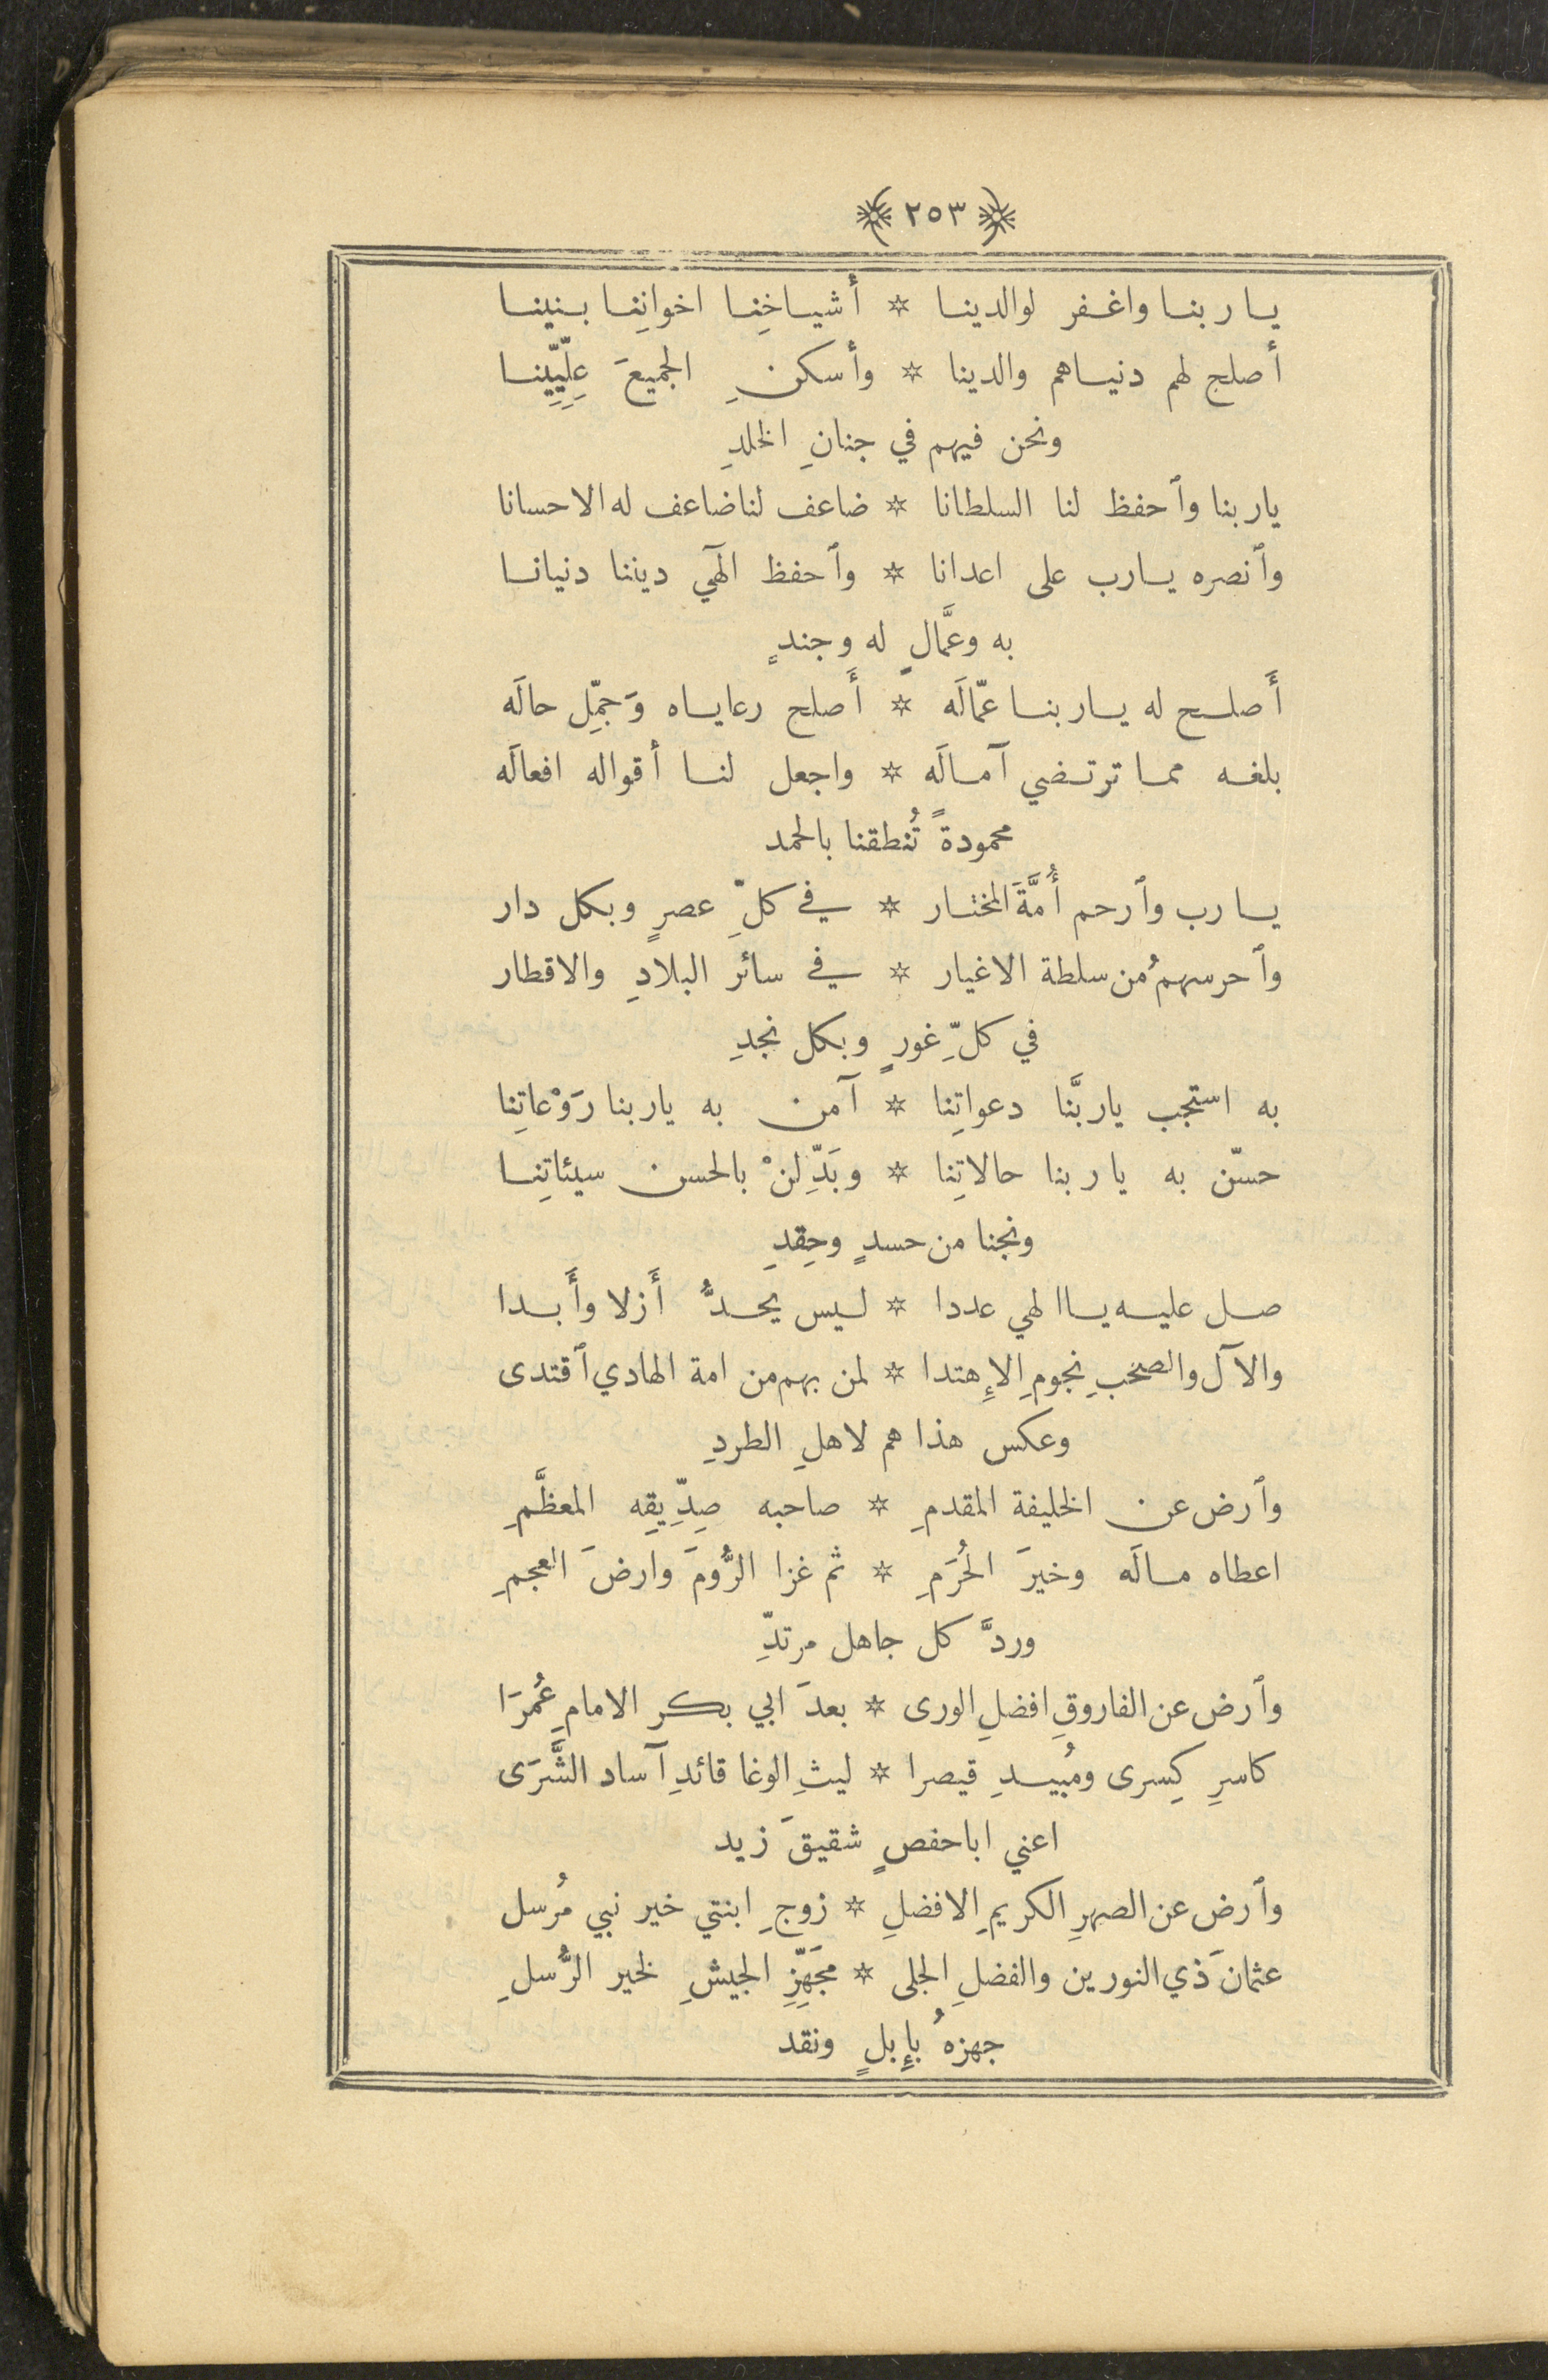 ﴿ ٢٥٣ ﴾
يا ربنا واغفر لوالدينا * أشياخِنا اخوانِنا بنينا
أصلح لهم دنياهم والدينا * وأسكنِ الجميعَ عِلِّيِّينا
ونحن فيهم في جنانِ الخلدِ
ياربنا وٱحفظ لنا السلطانا * ضاعف لنا ضاعف له الاحسانا
وٱنصره يارب على اعدانا * وٱحفظ الٓهي ديننا دنيانا
به وعمَّالٍ له وجندٍ
أَصلح له ياربنا عمّالَه * أَصلح رعاياه وَجمِّل حالَه
بلغه مما ترتضي آمالَه * واجعل لنا أقواله افعالَه
محمودةً تُنطقنا بالحمد
يارب وٱرحم أُمَّةَ المختار * في كلِّ عصرٍ وبكل دار
وٱحرسهمُ من سلطة الاغيار * في سائر البلادِ والاقطار
في كلِّ غورٍ وبكل نجدِ
به استجب ياربَّنا دعواتِنا * آمن به ياربنا رَوْعاتِنا
حسّن به ياربنا حالاتِنا * وبَدِّلنْ بالحسن سيئاتِنا
ونجنا من حسدٍ وحِقدِ
صل عليه يا الهي عددا * ليس يحدُّ أَزلا وأَبدا
والآل والصحبِ نجومِ الإِهتدا * لمن بهم من امة الهادي ٱقتدى
وعكس هذا هم لاهلِ الطردِ
وٱرض عن الخليفة المقدمِ * صاحبه صِدِّيقِه المعظَّمِ
اعطاه مالَه وخيرَ الحُرَمِ * ثم غزا الرُّومَ وارضَ العجمِ
وردَّ كل جاهل مرتدِّ
وٱرض عن الفاروقِ افضلِ الورى * بعدَ ابي بكر الامامِ عُمرَا
كاسرِ كِسرى ومُبيدِ قيصرا * ليثِ الوغا قائدِ آساد الشَّرَى
اعني اباحفصٍ شقيقَ زيد
وٱرض عن الصهرِ الكريمِ الافضلِ * زوجِ ابنتي خير نبي مُرسل
عثمانَ ذي النورين والفضلِ الجلى * مجَهِّزِ الجيشِ لخير الرُّسلِ
جهزهُ بإِبلٍ ونقد